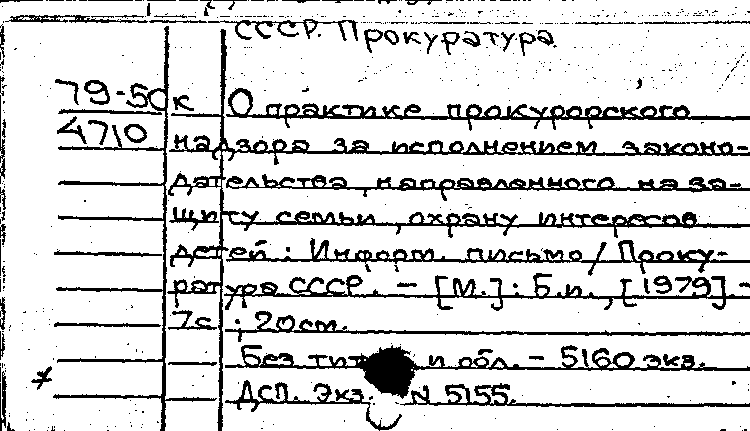 СССР. Прокуратура
79-50к О практике прокурорского
4710 надзора за исполнением законо-
дательства, направленного на за-
щиту семьи, охрану интересов
детей: Информ. письмо / Проку-
ратура СССР. - [М.]: Б.и., [1979].-
7с; 20см.
Без тит и обл. - 5160 экз.
ДСП. Экз. N 5155.